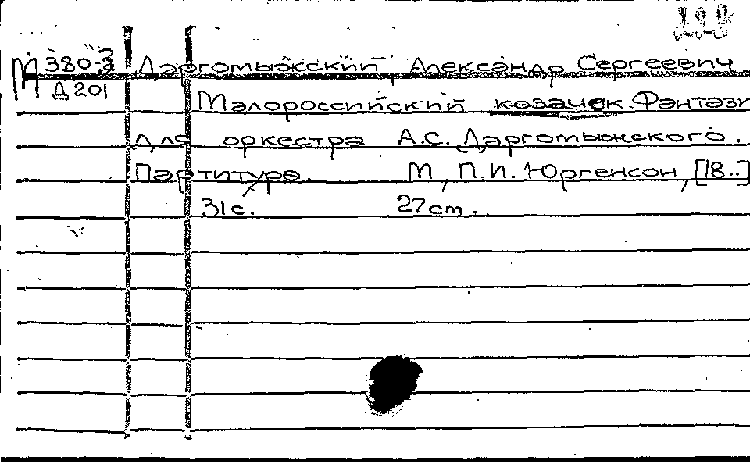 М 380-3 Даргомыжский Александр Сергеевич
Д 201
Малороссийский козачек. Фантази
для оркестра А.С. Даргомыжского.
Партитура. М, П.И. Юргенсон, [18..]
31с. 27cm.